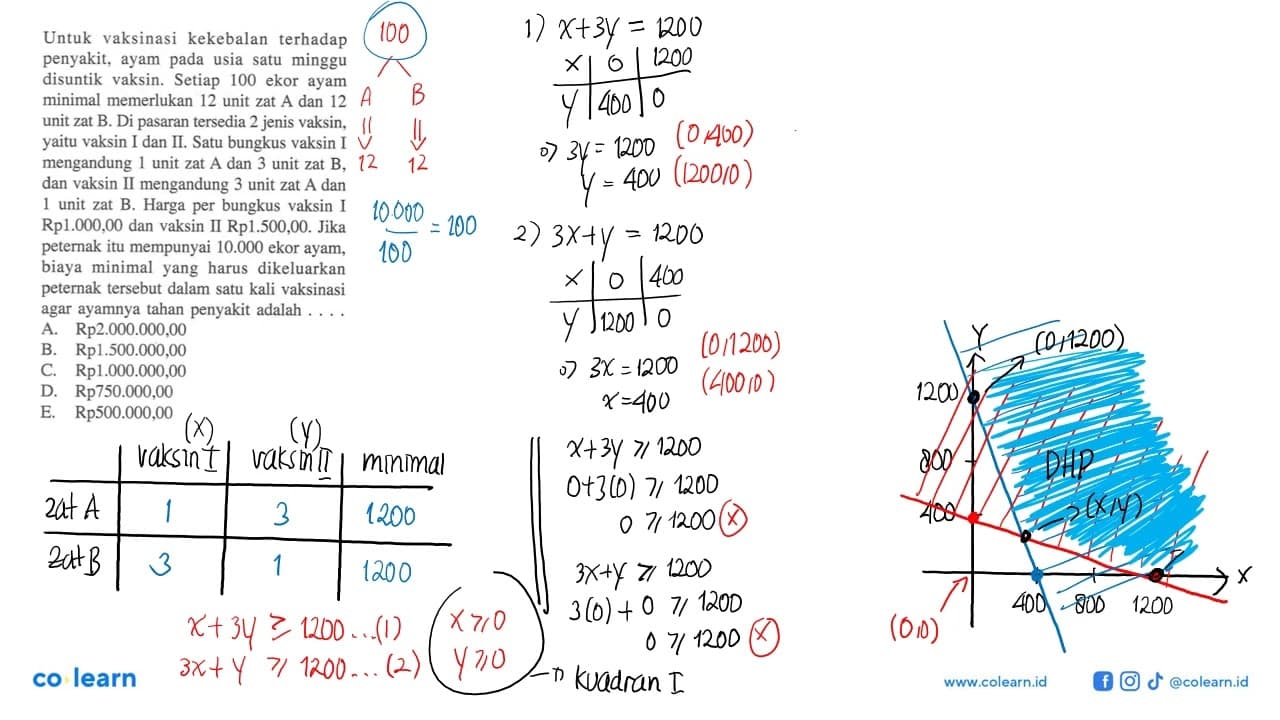 Untuk vaksinasi kekebalan terhadap
penyakit, ayam pada usia satu minggu
disuntik vaksin. Setiap 100 ekor ayam
minimal memerlukan 12 unit zat A dan 12
unit zat B. Di pasaran tersedia 2 jenis vaksin,
yaitu vaksin I dan II. Satu bungkus vaksin I
mengandung 1 unit zat A dan 3 unit zat B,
dan vaksin II mengandung 3 unit zat A dan
1 unit zat B. Harga per bungkus vaksin I
Rp1.000,00 dan vaksin II Rp1.500,00. Jika
peternak itu mempunyai 10.000 ekor ayam,
biaya minimal yang harus dikeluarkan
peternak tersebut dalam satu kali vaksinasi
agar ayamnya tahan penyakit adalah . . . .
A. Rp2.000.000,00
B. Rp1.500.000,00
C. Rp1.000.000,00
D. Rp750.000,00
E. Rp500.000,00
100
A B
12 12
10.000/100 = 100
(x) (y)
vaksin I vaksin II minimal
zat A 1 3 1200
zat B 3 1 1200
x + 3y ≥ 1200...(1)
3x + y ≥ 1200...(2)
x ≥ 0
y ≥ 0
→ kuadran I
1) x+3y = 1200
x 0 1200
y 400 0
3y = 1200 (0,400)
y = 400 (1200,0)
2) 3x+y = 1200
x 0 400
y 1200 0
3x = 1200 (0,1200)
x = 400 (400,0)
x+3y ≥ 1200
0+3(0) ≥ 1200
0 ≥ 1200 (x)
3x+y ≥ 1200
3(0) + 0 ≥ 1200
0 ≥ 1200 (x)
Y
(0,1200)
1200
800
DHP
400
(x,y)
X
400 800 1200
(0,0)
co learn
www.colearn.id
@colearn.id